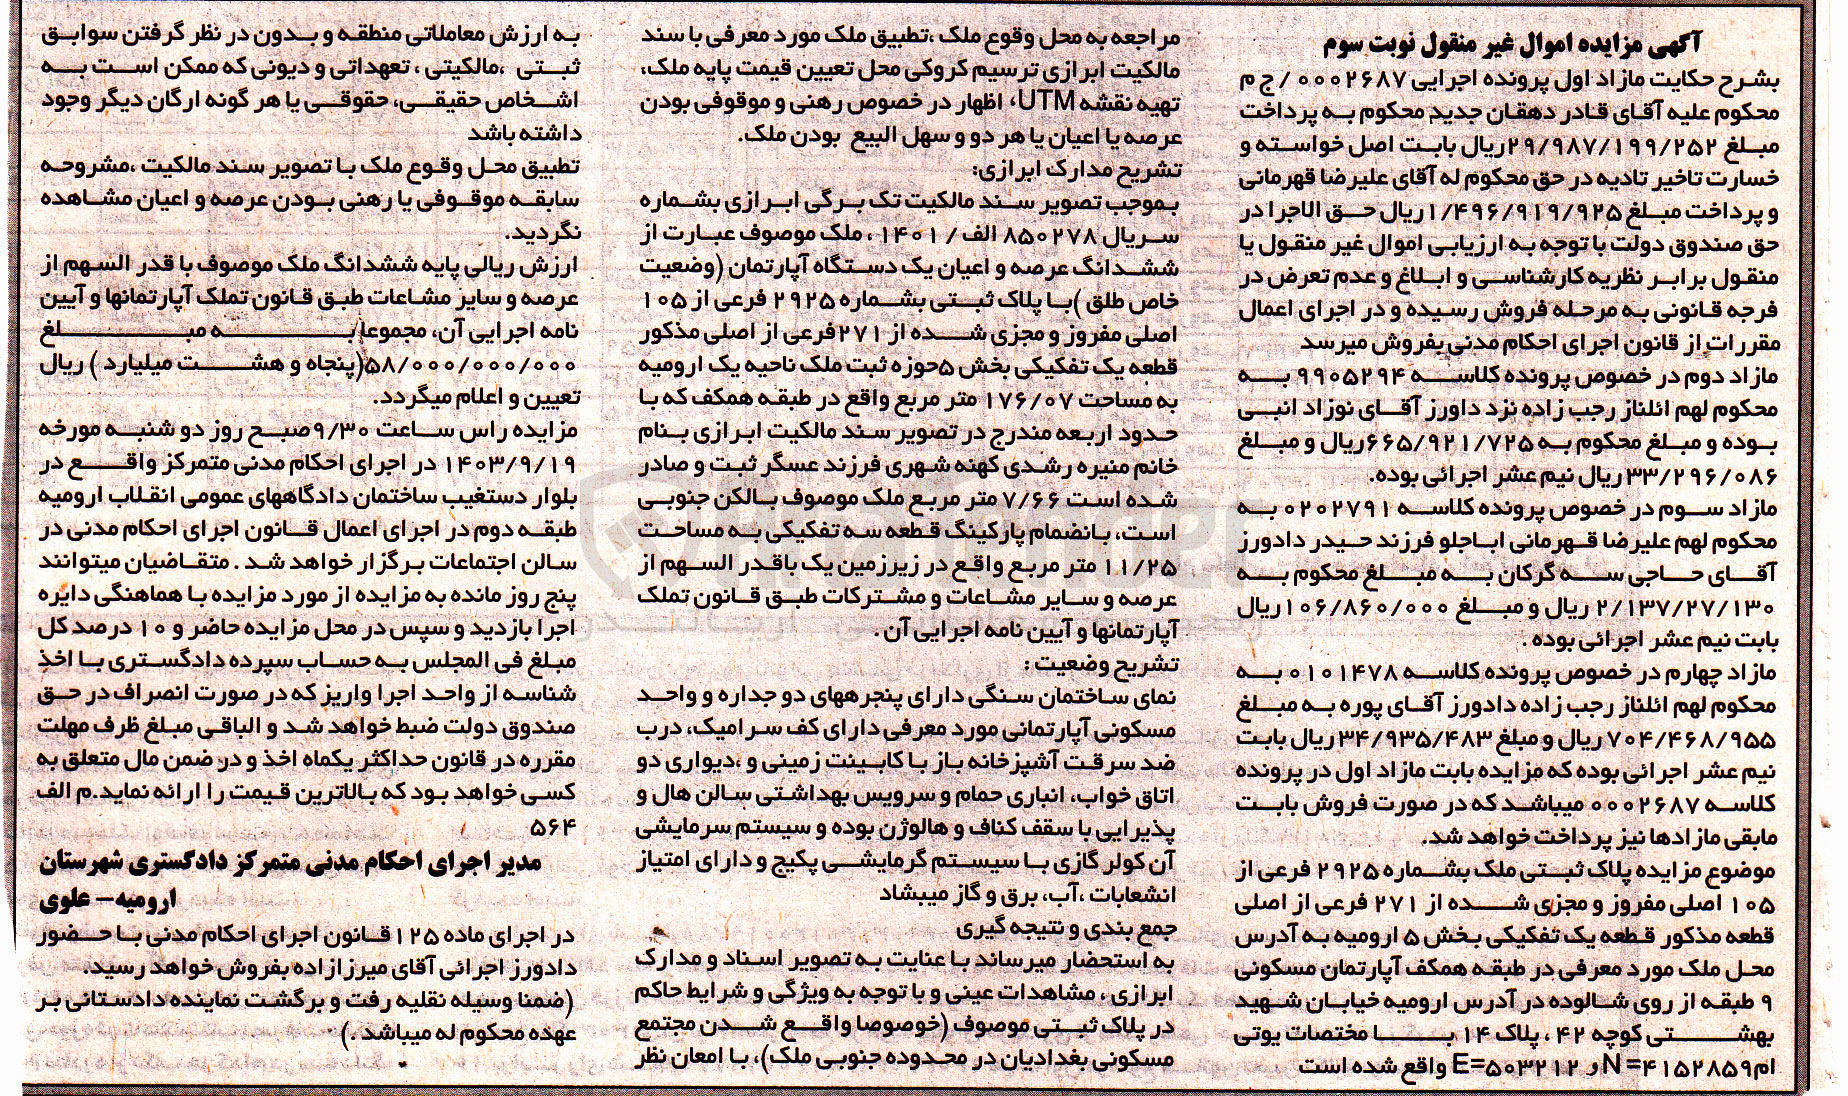 آگهی مزایده اموال غیر منقول نوبت سوم
بشرح حکایت مازاد اول پرونده اجرایی ۰۰۰۲۶۸۷/ج م
محکوم علیه آقای قادر دهقان جدید محکوم به پرداخت
مبلغ ۲۹/۹۸۷/۱۹۹/۲۵۲ریال بابت اصل خواسته و
خسارت تاخیر تادیه در حق محکوم له آقای علیرضا قهرمانی
و پرداخت مبلغ ۱/۴۹۶/۹۱۹/۹۲۵ ریال حق الاجرا در
حق صندوق دولت با توجه به ارزیابی اموال غیر منقول یا
منقول برابر نظریه کارشناسی و ابلاغ و عدم تعرض در
فرجه قانونی به مرحله فروش رسیده و در اجرای اعمال
مقررات از قانون اجرای احکام مدنی بفروش میرسد
مازاد دوم در خصوص پرونده کلاسه ۹۹۰۵۲۹۴ به
محکوم لهم ائلناز رجب زاده نزد داورز آقای نوزاد انبی
بوده و مبلغ محکوم به ۶۶۵/۹۲۱/۷۲۵ریال و مبلغ
۳۳/۲۹۶/۰۸۶ ریال نیم عشر اجرائی بوده.
مازاد سوم در خصوص پرونده کلاسه ۰۲۰۲۷۹۱ به
محکوم لهم علیرضا قهرمانی اباجلو فرزند حیدر دادورز
آقای حاجی سه گرکان به مبلغ محکوم به
۲/۱۳۷/۲۷/۱۳۰ ریال و مبلغ ۱۰۶/۸۶۰/۰۰۰ریال
بابت نیم عشر اجرائی بوده .
مازاد چهارم در خصوص پرونده کلاسه ۰۱۰۱۴۷۸ به
محکوم لهم ائلناز رجب زاده دادورز آقای پوره به مبلغ
۷۰۴/۴۶۸/۹۵۵ ریال و مبلغ ۳۴/۹۳۵/۴۸۳ ریال بابت
نیم عشر اجرائی بوده که مزایده بابت مازاد اول در پرونده
کلاسه ۰۰۰۲۶۸۷ میباشد که در صورت فروش بابت
مابقی مازادها نیز پرداخت خواهد شد.
موضوع مزایده پلاک ثبتی ملک بشماره ۲۹۲۵ فرعی از
۱۰۵ اصلی مفروز و مجزی شده از ۲۷۱ فرعی از اصلی
قطعه مذکور قطعه یک تفکیکی بخش ۵ ارومیه به آدرس
محل ملک مورد معرفی در طبقه همکف آپارتمان مسکونی
۹ طبقه از روی شالوده در آدرس ارومیه خیابان شهید
بهشتی کوچه ۴۲ ، پلاک ۱۴ با مختصات یوتی
ام N=۴۱۵۲۸۵۹ و E=۵۰۳۲۱۲ واقع شده است
مراجعه به محل وقوع ملک ،تطبیق ملک مورد معرفی با سند
مالکیت ابرازی ترسیم کروکی محل تعیین قیمت پایه ملک،
تهیه نقشه UTM، اظهار در خصوص رهنی و موقوفی بودن
عرصه یا اعیان یا هر دو و سهل البیع بودن ملک.
تشریح مدارک ابرازی:
بموجب تصویر سند مالکیت تک برگی ابرازی بشماره
سریال ۸۵۰۲۷۸ الف/۱۴۰۱ ، ملک موصوف عبارت از
ششدانگ عرصه و اعیان یک دستگاه آپارتمان (وضعیت
خاص طلق )با پلاک ثبتی بشماره ۲۹۲۵ فرعی از ۱۰۵
اصلی مفروز و مجزی شده از ۲۷۱فرعی از اصلی مذکور
قطعه یک تفکیکی بخش ۵حوزه ثبت ملک ناحیه یک ارومیه
به مساحت ۱۷۶/۰۷ متر مربع واقع در طبقه همکف که با
حدود اربعه مندرج در تصویر سند مالکیت ابرازی بنام
خانم منیره رشدی کهنه شهری فرزند عسگر ثبت و صادر
شده است ۷/۶۶ متر مربع ملک موصوف بالکن جنوبی
است، بانضمام پارکینگ قطعه سه تفکیکی به مساحت
۱۱/۲۵ متر مربع واقع در زیرزمین یک باقدر السهم از
عرصه و سایر مشاعات و مشترکات طبق قانون تملک
آپارتمانها و آیین نامه اجرایی آن.
تشریح وضعیت :
نمای ساختمان سنگی دارای پنجرههای دو جداره و واحد
مسکونی آپارتمانی مورد معرفی دارای کف سرامیک، درب
ضد سرقت آشپزخانه باز با کابینت زمینی و ،دیواری دو
اتاق خواب، انباری حمام و سرویس بهداشتی سالن هال و
پذیرایی با سقف کناف و هالوژن بوده و سیستم سرمایشی
آن کولر گازی با سیستم گرمایشی پکیج و دارای امتیاز
انشعابات ،آب، برق و گاز میبشاد
جمع بندی و نتیجه گیری
به استحضار میرساند با عنایت به تصویر اسناد و مدارک
ابرازی ، مشاهدات عینی و با توجه به ویژگی و شرایط حاکم
در پلاک ثبتی موصوف (خوصوصا واقع شدن مجتمع
مسکونی بغدادیان در محدوده جنوبی ملک)، با امعان نظر
به ارزش معاملاتی منطقه و بدون در نظر گرفتن سوابق
ثبتی ،مالکیتی ، تعهداتی و دیونی که ممکن است به
اشخاص حقیقی، حقوقی یا هر گونه ارگان دیگر وجود
داشته باشد
تطبیق محل وقوع ملک با تصویر سند مالکیت ،مشروحه
سابقه موقوفی یا رهنی بودن عرصه و اعیان مشاهده
نگردید.
ارزش ریالی پایه ششدانگ ملک موصوف با قدر السهم از
عرصه و سایر مشاعات طبق قانون تملک آپارتمانها و آیین
نامه اجرایی آن، مجموعا به مبلغ
۵۸/۰۰۰/۰۰۰/۰۰۰(پنجاه و هشت میلیارد ) ریال
تعیین و اعلام میگردد.
مزایده راس ساعت ۹/۳۰صبح روز دو شنبه مورخه
۱۴۰۳/۹/۱۹ در اجرای احکام مدنی متمرکز واقع در
بلوار دستغیب ساختمان دادگاههای عمومی انقلاب ارومیه
طبقه دوم در اجرای اعمال قانون اجرای احکام مدنی در
سالن اجتماعات برگزار خواهد شد . متقاضیان میتوانند
پنج روز مانده به مزایده از مورد مزایده با هماهنگی دایره
اجرا بازدید و سپس در محل مزایده حاضر و ۱۰ درصد کل
مبلغ فی المجلس به حساب سپرده دادگستری با اخذ
شناسه از واحد اجرا واریز که در صورت انصراف در حق
صندوق دولت ضبط خواهد شد و الباقی مبلغ ظرف مهلت
مقرره در قانون حداکثر یکماه اخذ و در ضمن مال متعلق به
کسی خواهد بود که بالاترین قیمت را ارائه نماید.م الف
۵۶۴
مدیر اجرای احکام مدنی متمرکز دادگستری شهرستان
ارومیه– علوی
در اجرای ماده ۱۲۵ قانون اجرای احکام مدنی با حضور
دادورز اجرائی آقای میرزازاده بفروش خواهد رسید.
(ضمنا وسیله نقلیه رفت و برگشت نماینده دادستانی بر
عهده محکوم له میباشد .)